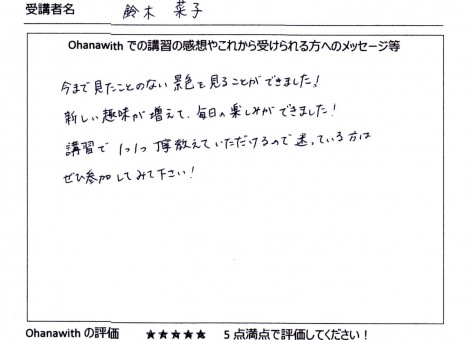 受講者名 鈴木 菜子
Ohanawith での講習の感想やこれから受けられる方へのメッセージ等
今まで見たことのない景色を見ることができました!
新しい趣味が増えて、毎日の楽しみができました!
講習で1つ1つ丁寧教えていただけるので迷っている方は
ぜひ参加してみて下さい!
Ohanawith の評価 ★★★★★ 5点満点で評価してください!